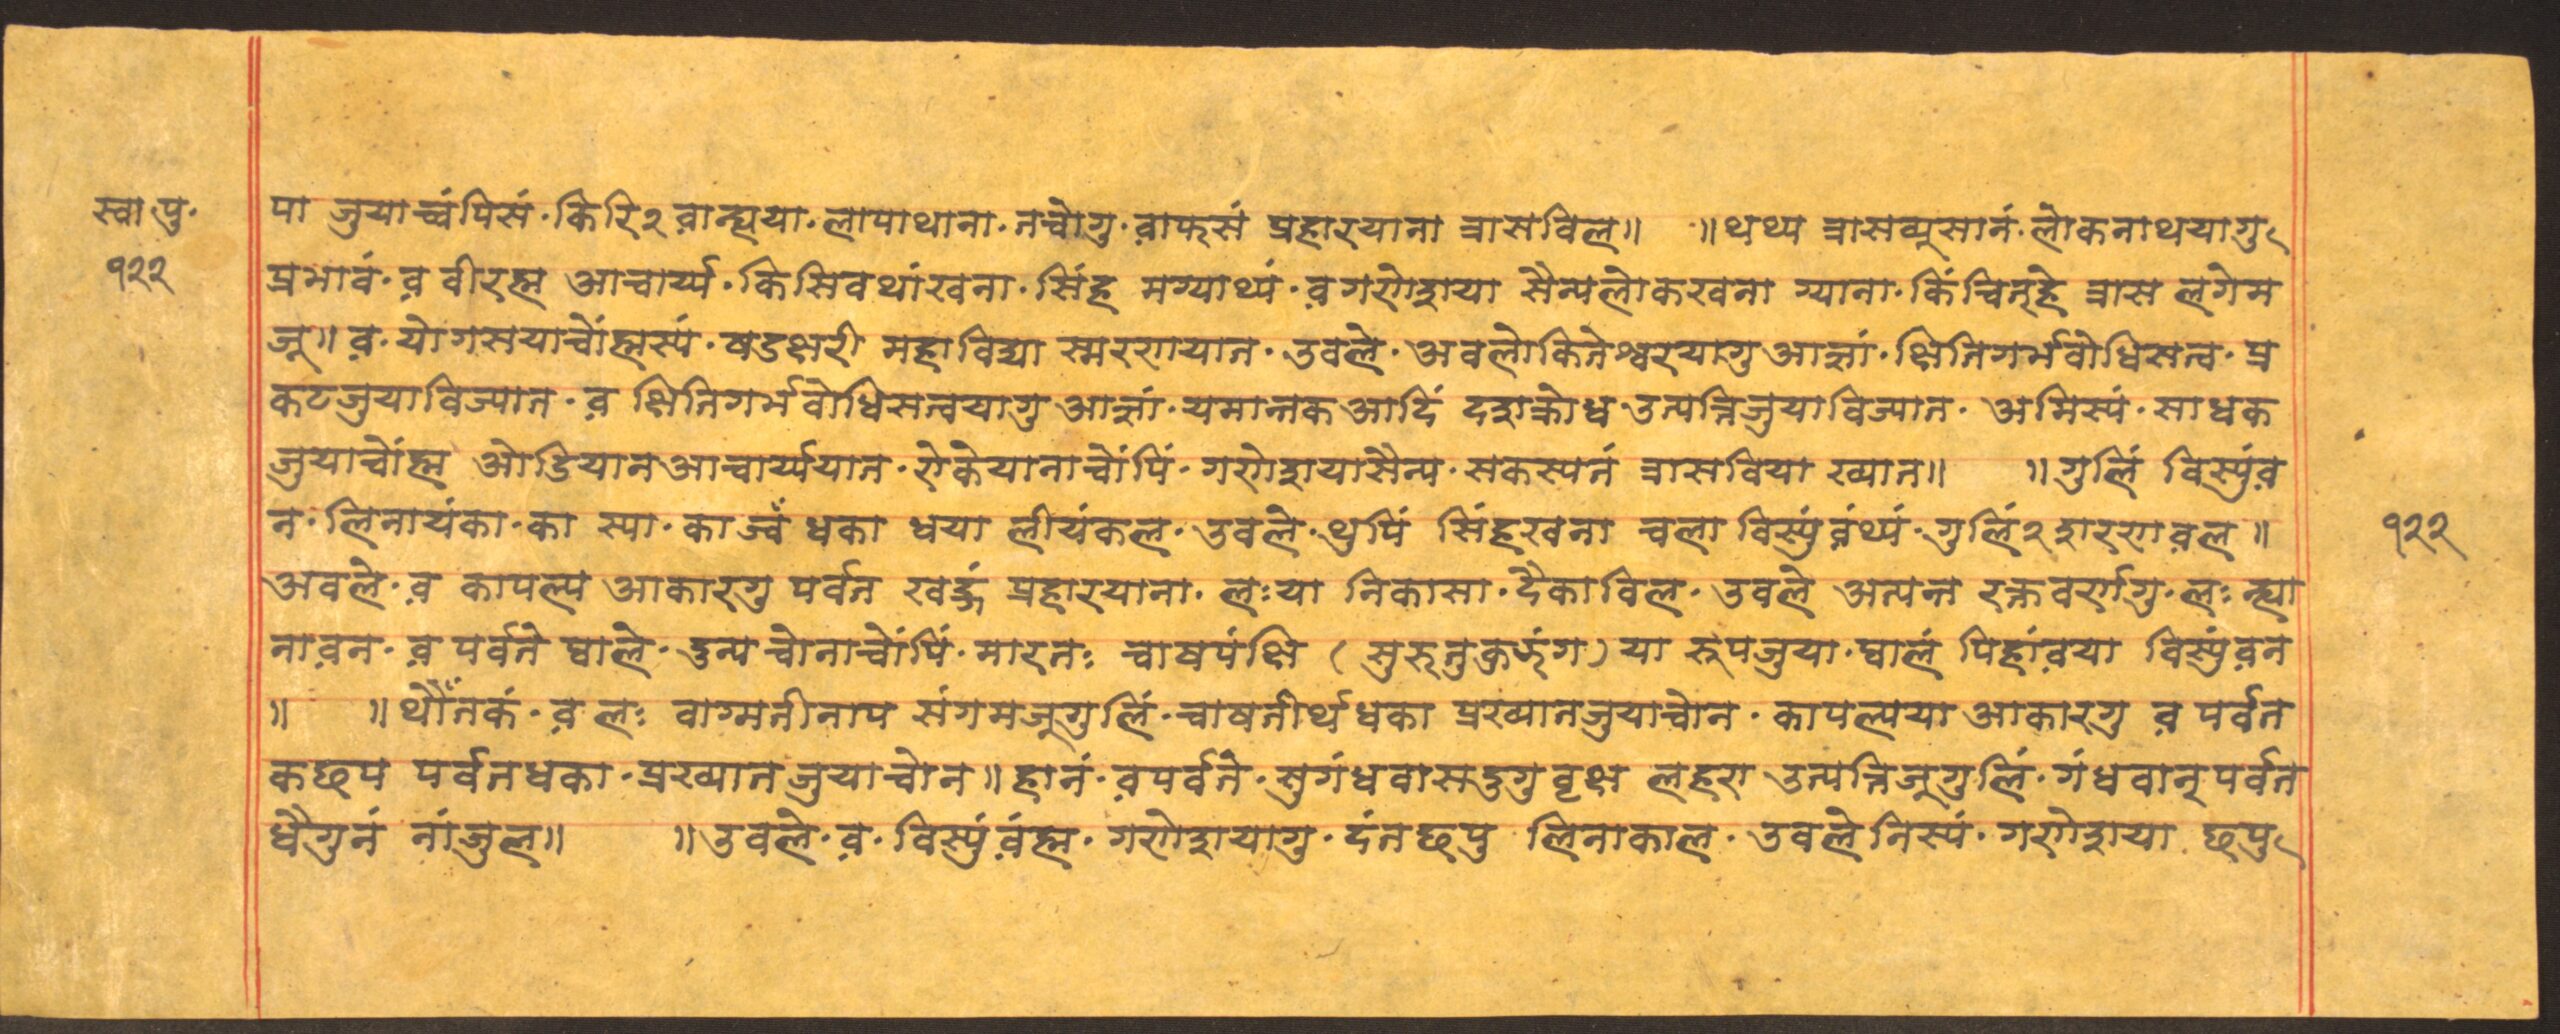 स्वा पु.
१२२
पा जुयाच्वंपिसं. किरि२ व़ान्ह्यया. लापाथाना. नच्वोगु. व़ाफसं प्रहारयाना त्रासविल॥ ॥थथ्य त्रासब्यूसानं. लोकनाथयागु
प्रभावं. व़ वीरह्म आचार्य्य. किसिवथांखना. सिंह मग्याथ्यं. व़गणेशया सैन्यलोकखना ग्याना. किंचित्हे त्रास लगेम
जू॥ व़. योगसयाचोंह्मस्यं. षडक्षरी महाविद्या स्मरणयात. उवले. अवलोकितेश्वरयागु आज्ञां. क्षितिगर्भवोधिसत्व. प्र
कटजुयाविज्यात. व़ क्षितिगर्भवोधिसत्वयागु आज्ञां. यमान्तक आदिं दशक्रोध उत्पन्निजुयाविज्यात. अमिस्यं. साधक
जुयाचोंह्म ओडियानआचार्य्ययात. रोकेयानाचोंपिं. गणेशयासैन्य. सकस्यनं त्रासविया ख्यात॥ ॥गुलिं विस्युंव़
न. लिनायंका. का स्या. का ज्वँ धका धया लीयंकल. उवले. थुपिं सिंहखना चला विस्युंव़ंथ्यं. गुलिं२ शरणव़ल॥
१२२
अवले. व़ कापल्य आकारगु पर्वत खड्गं प्रहारयाना. लःया निकासा. दैकाविल. उवले अत्यन्त रक्तवर्णगु. लः न्ह्या
नाव़न. व़ पर्वते घ्वाले. दुन्य चोनाचोंपिं. मारतः चाषपंक्षि (सुरुतुक्रऊंग) या रूपजुया. घ्वालं पिहांव़या विस्युंव़न
॥ ॥थौंतकं. व़ लः वाग्मतीनाप संगमजूगुलिं. चाषतीर्थधका प्रख्यातजुयाचोन. कापल्यया आकारगु व़ पर्वत
कछप पर्वतधका. प्रख्यात जुयाचोन॥ हानं. व़पर्वते. सुगंधवासदुगु वृक्ष लहरा उत्पन्निजूगुलिं. गंधवान् पर्वत
धैगुनं नांजुल॥ ॥उवले. व़. विस्युंव़ंह्म. गणेशयागु. दंतछपु लिनाकाल. उवलेनिस्यं. गणेशया छपु